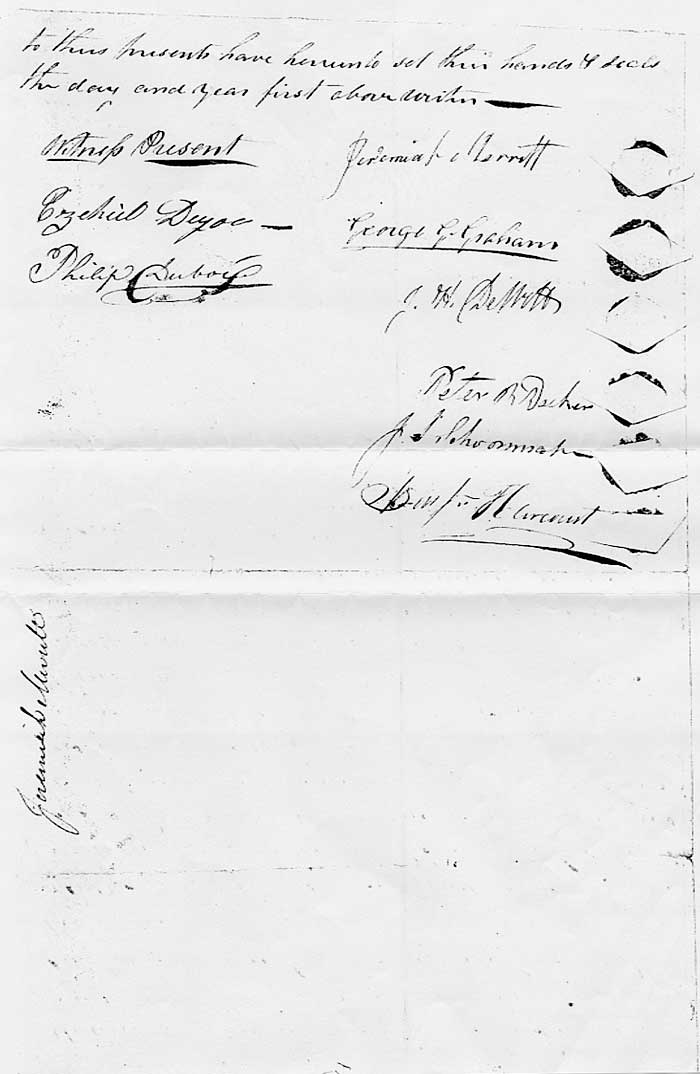 to thise presents have hereunto set their hands & seals
the day and year first above writen
Witness Present
Ezekiel Deyoe
Philip Duboys
Jeremiah Merritt
George G. Graham
J. H. DeWitt
Peter R Decker
J S Schoonmaker
Harcourt
Jeremiah Merritt